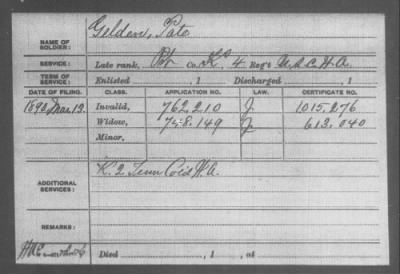 NAME OF SOLDIER: Geldon, Pato
SERVICE: Late rank, Pvt Co. K, 4 Reg't U.S.C.H.A.
TERM OF SERVICE: Enlisted , 1 Discharged , 1
DATE OF FILING. CLASS. APPLICATION NO. LAW. CERTIFICATE NO.
1890 Mar 13. Invalid, 762.210 J. 1015.276
Widow, 748.149 J 613.040
Minor,
ADDITIONAL SERVICES: K. 2 Tenn Col'd H.A.
REMARKS:
Died , 1 , at